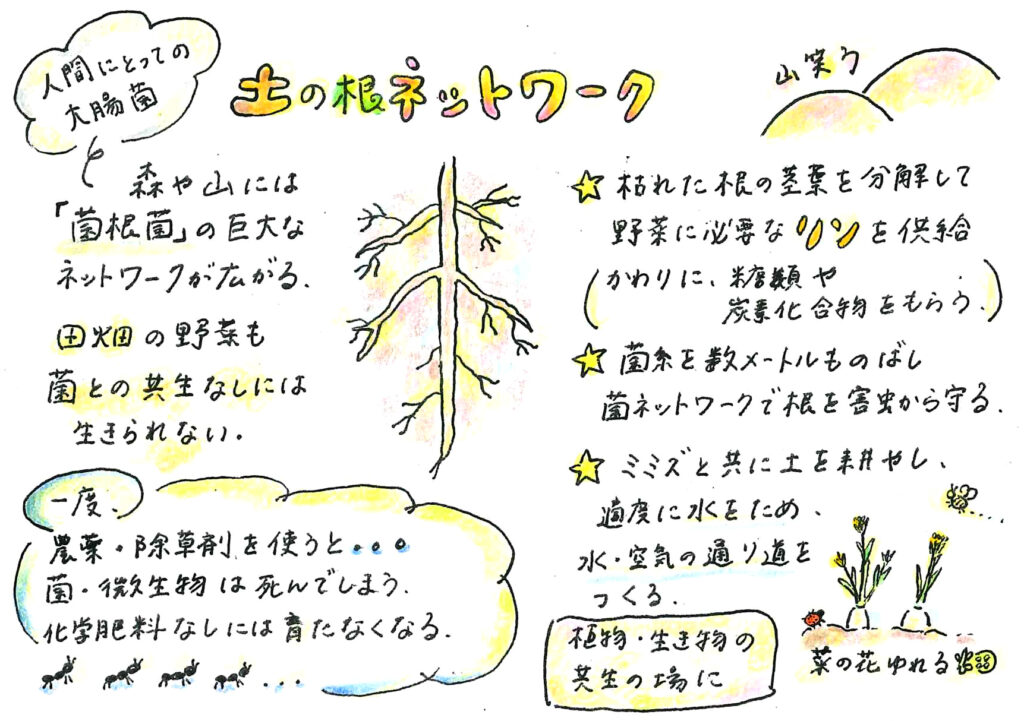 人間にとっての
大腸菌
土の根ネットワーク
山笑う
森や山には
「菌根菌」の巨大な
ネットワークが広がる.
田畑の野菜も
菌との共生なしには
生きられない。
一度、
農薬・除草剤を使うと...
菌・微生物は死んでしまう.
化学肥料なしには育たなくなる.
☆枯れた根の茎葉を分解して
野菜に必要なリンを供給
(かわりに、糖類や
炭素化合物をもらう.)
☆菌糸を数メートルものばし
菌ネットワークで根を害虫から守る.
☆ミミズと共に土を耕やし、
適度に水をため、
水・空気の通り道を
つくる.
植物・生き物の
共生の場に
菜の花ゆれる